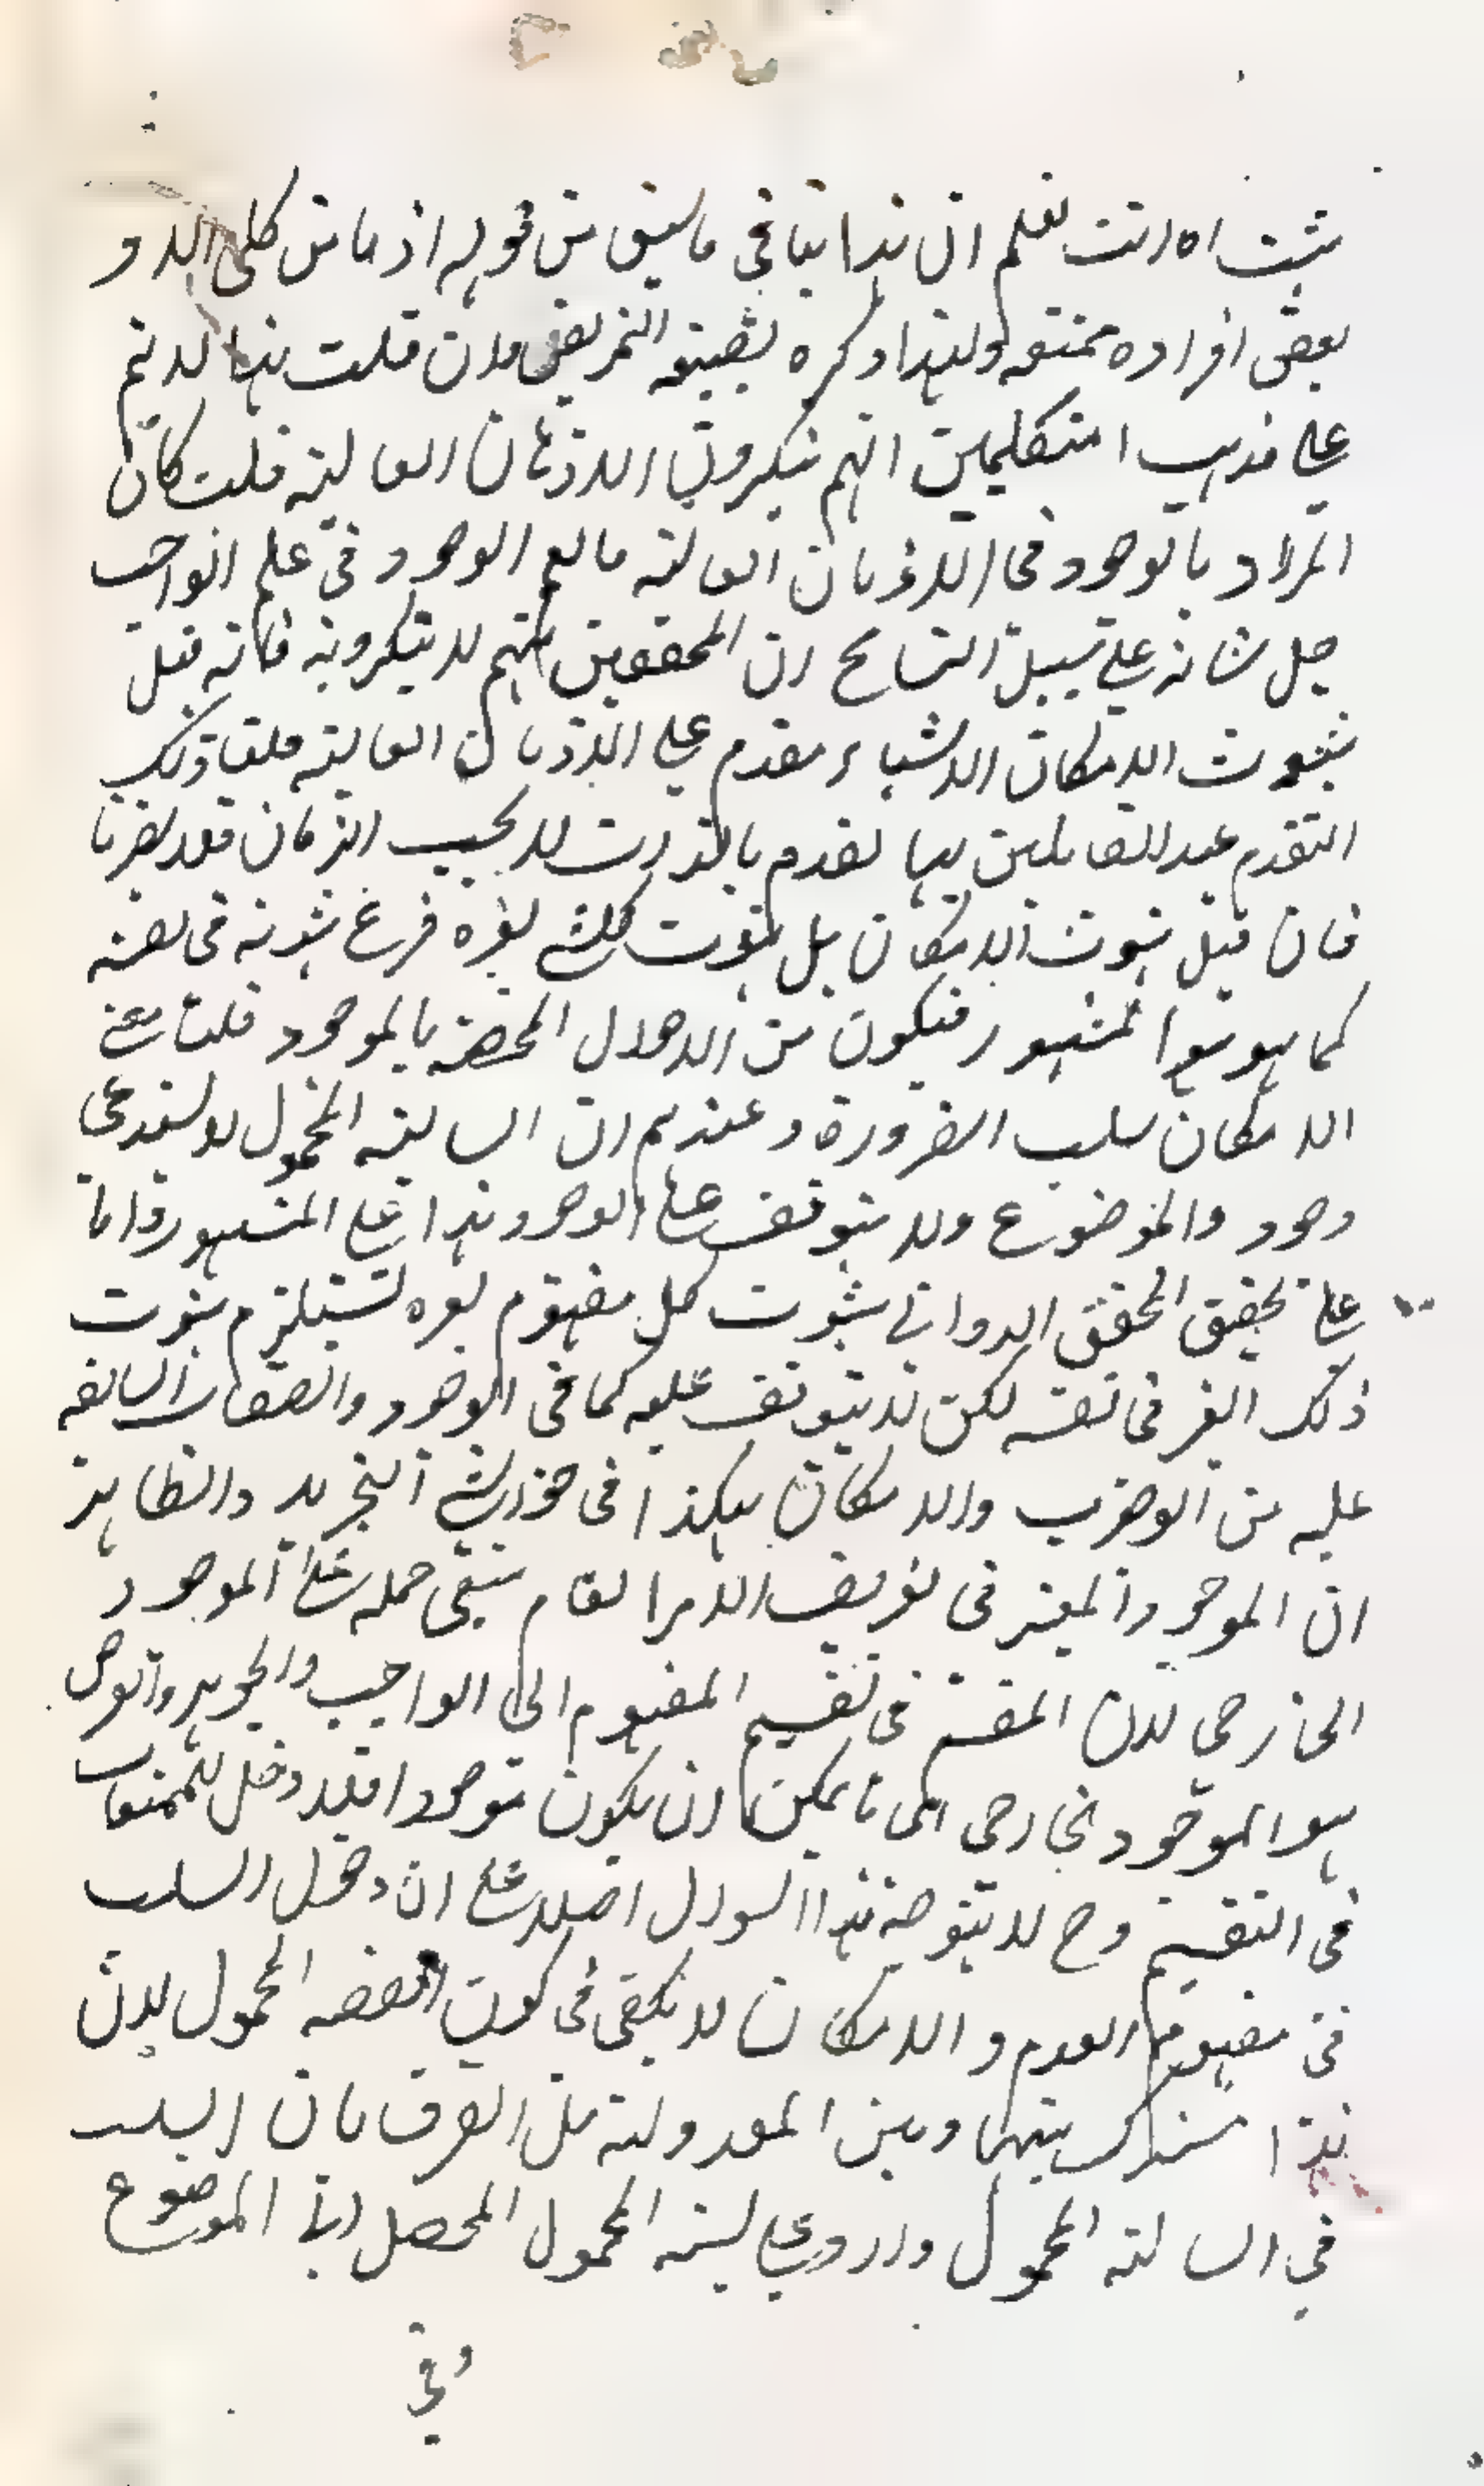 يثبت اه انت تعلم ان هذا ينافي ما سبق من قوله اذ ما من كلي الا و
بعض افراده ممتنعه ولهذا ذكره بصيغه التمريض فان قلت هذا لا يتم
على مذهب المتكلمين انهم ينكرون الاذهان العاليه قلت كان
المراد بالوجود في الاذهان العاليه ما يعم الوجود في علم الواجب
جل شانه على سبيل التسامح ان المحققين منهم لا ينكرونه فانه قيل
ثبوت الامكان للاشياء مقدم على الاذهان العاليه قلنا ذلك
التقدم عند القائلين بها تقدم بالذات لا بحسب الزمان فلا يضرنا
فان قيل ثبوت الامكان بل ثبوت كل شي لغيره فرع ثبوته في نفسه
كما هو المشهور فيكون من الاحوال المختصه بالموجود قلنا معنى
الامكان سلب الضرورة وعندهم ان السالبه المحمول لا يستدعي
وجود الموضوع ولا يتوقف على الوجود هذا على المشهور واما
على تحقيق المحقق الدواني ثبوت كل مفهوم لغيره يستلزم ثبوت
ذلك الغير في نفسه لكن لا يتوقف عليه كما في الوجود والصفات السابقه
عليه من الوجوب والامكان هكذا في حواشي التجريد والظاهر
ان الموجود المعتبر في تعريف الامر العام ينبغي حمله على الموجود
الخارجي لان المقسم في تقسيم المفهوم الى الواجب والجوهر والعرض
هو الموجود الخارجي اي ما يمكن ان يكون موجودا فلا دخل للممتنعات
في التقسيم وح لا يتوجه هذا السوال اصلا على ان دخول السلب
في مفهوم العدم و الامكان لا يكفي في كون القضيه المحمول لان
هذا مشترك بينها وبين المعدوله بل الفرق بان السلب
في السالبه المحمول وارد على نسبه المحمول المحصل الى الموضوع
وفي